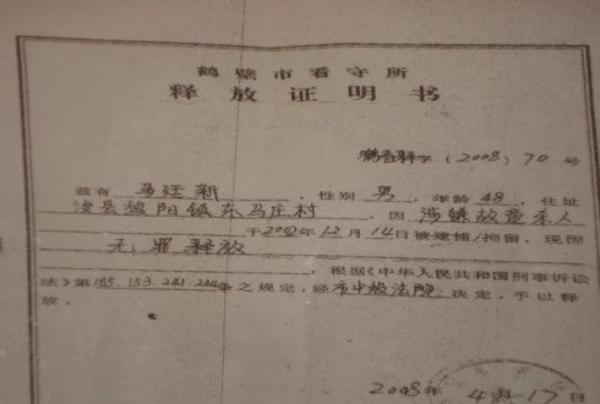 鹤壁市看守所
释放证明书
鹤看释字(2008)70号
兹有 马廷新 ，性别 男 ，年龄 48 ，住址
浚县黎阳镇东马庄村 ，因 涉嫌故意杀人
于2002年12月14日被逮捕/拘留，现因
无罪释放
，根据《中华人民共和国刑事诉讼
法》第185.153.241.244条之规定，经市中级法院 决定，予以释
放。
2008年4月17日